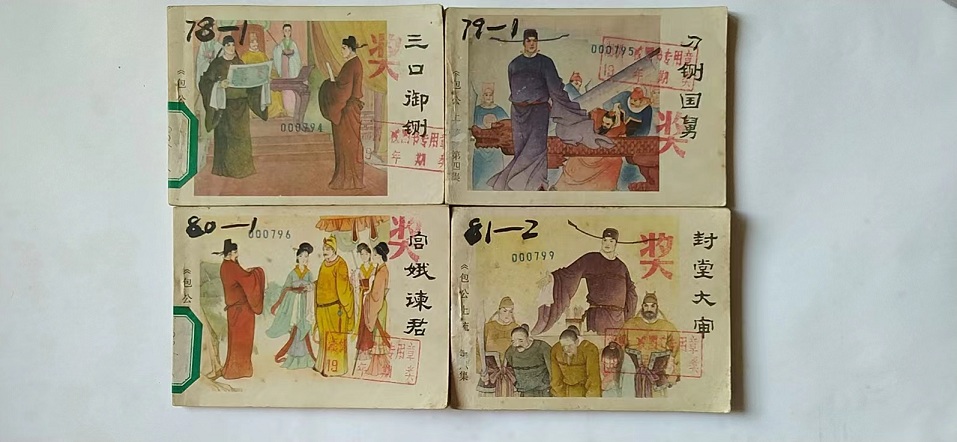 78-1
三口御铡
奖
000794
《包公
书专用章
年 期 类
79-1
铡国舅
奖
000795
《包公上
第四集
专用章
19 年 期
80-1
宫娥谏君
奖
000796
《包公
专用章
19
年 期 类
81-2
封堂大审
奖
000799
《包公上
集
专用章
年 期 类